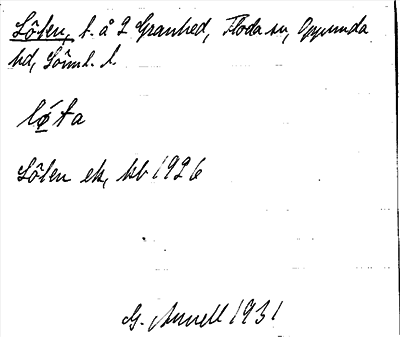 Löten, t. å 2 Granhed, Floda sn, Oppunda
hd, Sörml. l.
lø̄́ta
Löten ek, kb 1926
G. Annell 1931